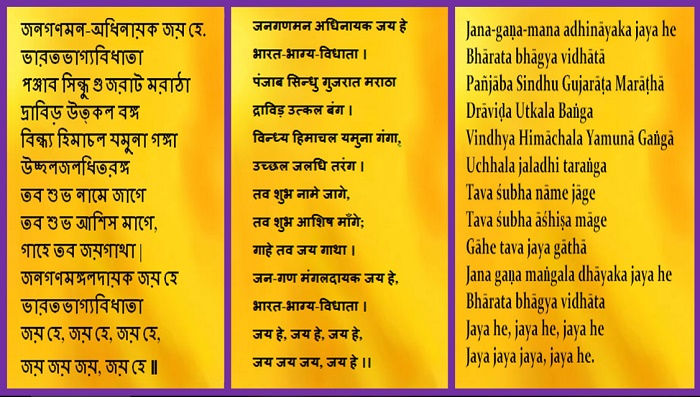 জনগণমন-অধিনায়ক জয় হে.
ভারতভাগ্যবিধাতা
পঞ্জাব সিন্ধু গুজরাট মরাঠা
দ্রাবিড় উত্কল বঙ্গ
বিন্ধ্য হিমাচল যমুনা গঙ্গা
উচ্ছলজলধিতরঙ্গ
তব শুভ নামে জাগে
তব শুভ আশিস মাগে,
গাহে তব জয়গাথা |
জনগণমঙ্গলদায়ক জয় হে
ভারতভাগ্যবিধাতা
জয় হে, জয় হে, জয় হে,
জয় জয় জয়, জয় হে ॥
जनगणमन अधिनायक जय हे
भारत-भाग्य-विधाता ।
पंजाब सिन्धु गुजरात मराठा
द्राविड़ उत्कल बंग ।
विन्ध्य हिमाचल यमुना गंगा,
उच्छल जलधि तरंग ।
तव शुभ नामे जागे,
तव शुभ आशिष माँगे;
गाहे तव जय गाथा ।
जन-गण मंगलदायक जय हे,
भारत-भाग्य-विधाता ।
जय हे, जय हे, जय हे,
जय जय जय, जय हे ।।
Jana-gaṇa-mana adhināyaka jaya he
Bhārata bhāgya vidhātā
Pañjāba Sindhu Gujarāṭa Marāṭhā
Drāviḍa Utkala Baṅga
Vindhya Himāchala Yamunā Gaṅgā
Uchhala jaladhi taraṅga
Tava śubha nāme jāge
Tava śubha āśhiṣa māge
Gāhe tava jaya gāthā
Jana gaṇa maṅgala dhāyaka jaya he
Bhārata bhāgya vidhāta
Jaya he, jaya he, jaya he
Jaya jaya jaya, jaya he.